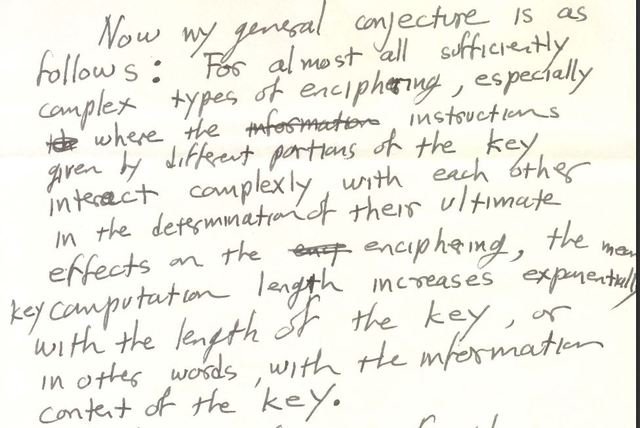 Now my general conjecture is as
follows: For almost all sufficiently
complex types of enciphering, especially
where the information instructions
given by different portions of the key
interact complexly with each other
in the determination of their ultimate
effects on the enciphering, the mean
key computation length increases exponentially
with the length of the key, or
in other words, with the information
content of the key.